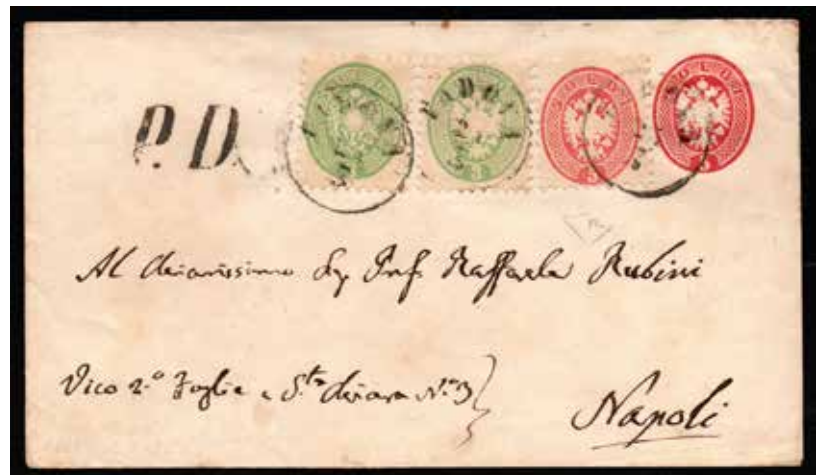 P.D.
PADOVA
SOLDI
SOLDI
5
5
Al Chiarissimo Sig. Prof. Raffaele Rubini
Vico 2.º Foglie a S.ta Chiara N.º
Napoli